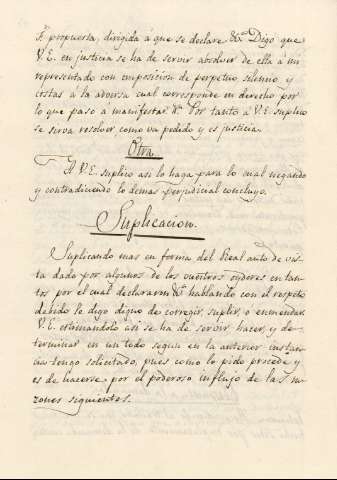 propuesta, dirigida á que se declare &c.ª Digo que
V. E. en justicia se ha de servir absolver de ella á mi
representado con imposicion de perpetuo silencio, y
costas á la adversa cual corresponde en derecho, por
lo que paso á manifestar &.ª Por tanto á V. E. suplico
se serva resolver como va pedido y es justicia.
Otra
A V. E. suplico asi lo haga para lo cual negando
y contradiciendo lo demas perjudicial concluyo.
Suplicacion.
Suplicando mas en forma del Real auto de vis
ta dado por algunos de los vuestros oydores en tan-
tos por el cual declararon &.ª hablando con el respeto
debido le digo digno de corregir, suplir, o enmendar
V. E. estimandolo asi se ha de servir hacer, y de-
terminar en un todo segun en la anterior instan-
cia tengo solicitado, pues como lo pido procede y
es de hacerse por el poderoso influjo de las ra-
zones siguientes.